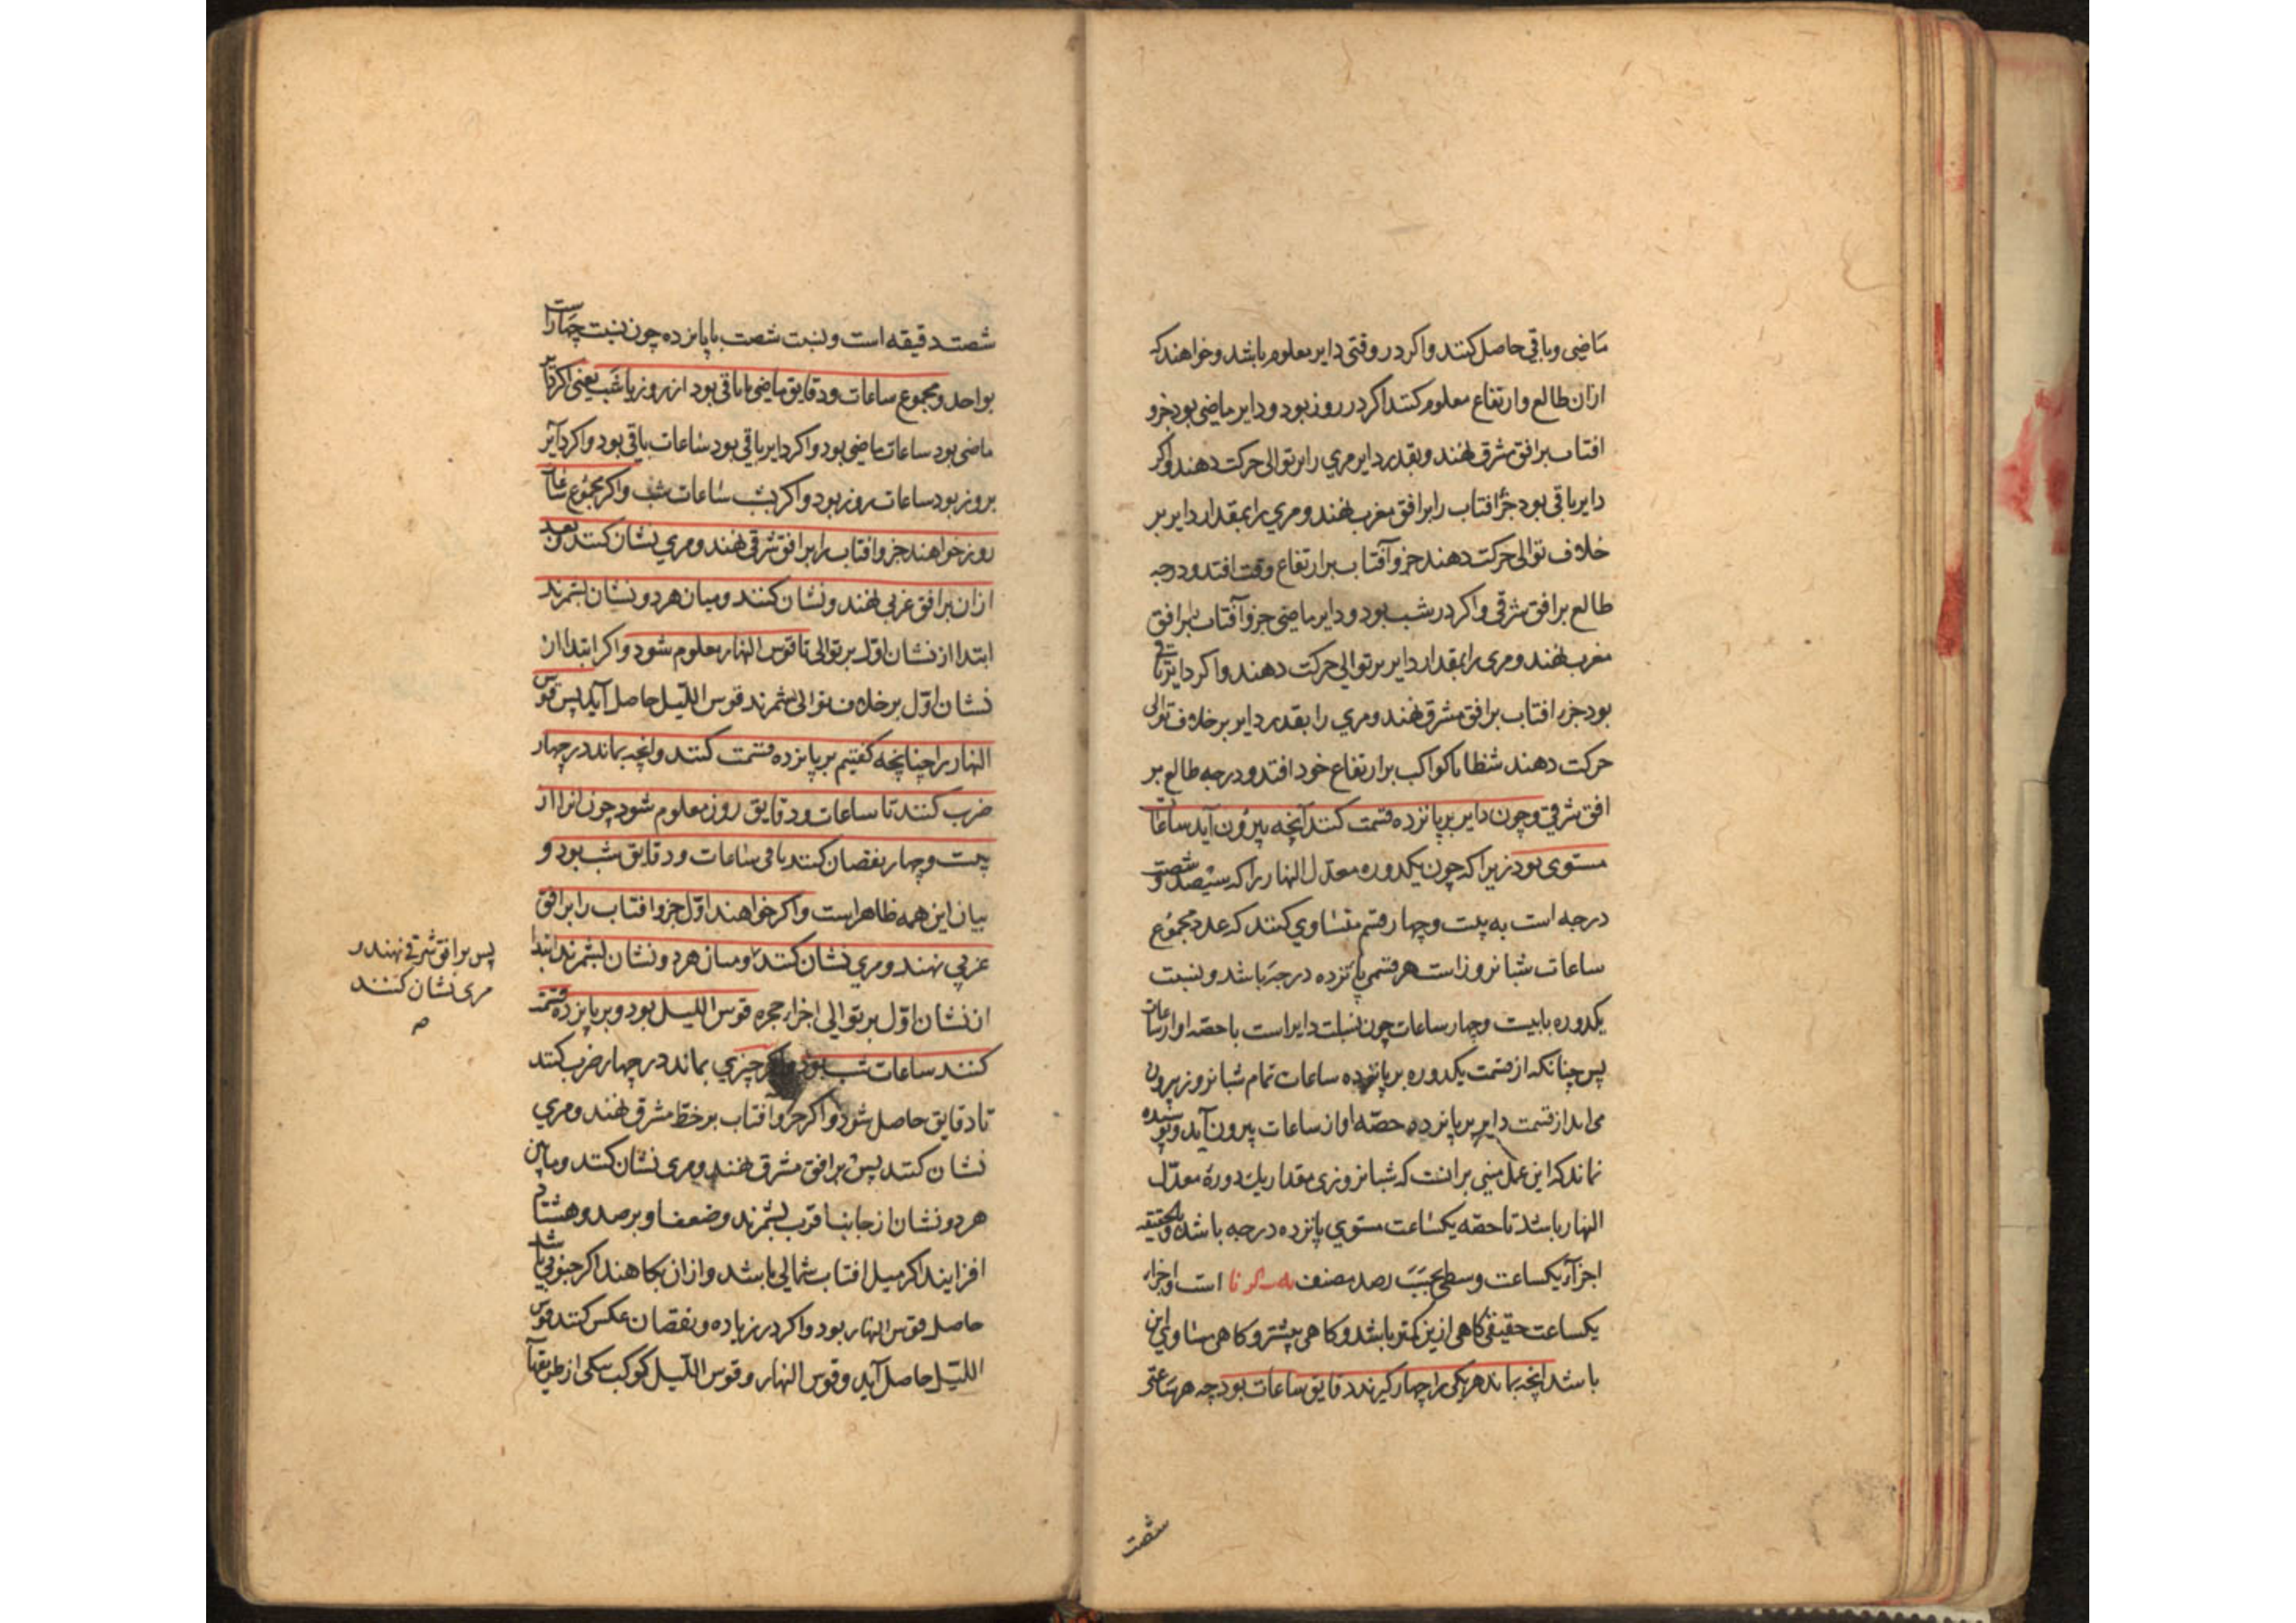 ماضی وباقی حاصل کنند واکر در وقتی دایر معلوم باشد وخواهند که
ازان طالع وارتفاع معلوم کنند اکر در روز بود ودایر ماضی بود جزو
افتاب بر افق مشرق نهند وبقدر دایر مری را بر توالی حرکت دهند واکر
دایر باقی بود جزؤ افتاب را بر افق مغرب نهند ومری را بمقدار دایر بر
خلاف توالی حرکت دهند جزو آفتاب بر ارتفاع وقت افتد ودرجه
طالع بر افق شرقی واکر در شب بود ودایر ماضی جزو آفتاب بر افق
مغرب نهند ومری را بمقدار دایر بر توالی حرکت دهند واکر دایر باقی
بود جزء افتاب بر افق مشرق نهند ومری را بقدر دایر بر خلاف توالی
حرکت دهند شظایا کواکب بر ارتفاع خود افتد ودرجه طالع بر
افق شرقی وچون دایر بر پانزده قسمت کنند آنچه بیرون آید ساعات
مستوی بود زیرا که چون یکدوره معدل النهار را که سیصد وشصت
درجه است به بیست وچهار قسم متساوی کنند که عدد مجموع
ساعات شبانروز است هر قسمی پانزده درجه باشد ونسبت
یکدوره با بیست وچهار ساعات چون نسبت دایر است با حصه او از ساعات
پس چنانکه از قسمت یکدوره بر پانزده ساعات تمام شبانروز بیرون
می اید از قسمت دایر بر پانزده حصه او از ساعات بیرون آید وپوشیده
نماند که این عمل مبنی برانست که شبانروزی مقدار یك دورهٔ معدل
النهار باشد تا حصه یکساعت مستوی پانزده درجه باشد وبحقیقه
اجزآء یکساعت وسطی بحسب رصد مصنف است واجزاء
یکساعت حقیقی کاهی ازین کمتر باشد وکاهی بیشتر وکاهی مساوی این
باشد انچه بماند هر یکی را چهار کیرند دقایق ساعات بود چه هر ساعتی
شصت
شصت دقیقه است ونسبت شصت با پانزده چون نسبت چهار است
بواحد ومجموع ساعات ودقایق ماضی یا باقی بود از روز یا شب یعنی اکر دایر
ماضی بود ساعات ماضی بود واکر دایر باقی بود ساعات باقی بود واکر دآیر
بروز بود ساعات روز بود واکر بشب ساعات شب واکر مجموع ساعات
روز خواهند جزو افتاب را بر افق شرقی نهند ومری نشان کنند وبعد
ازان بر افق غربی نهند ونشان کنند ومیان هر دو نشان بشمرند
ابتدا از نشان اول بر توالی تا قوس النهار معلوم شود واکر ابتدا از
نشان اول بر خلاف توالی شمرند قوس اللیل حاصل آید پس قوس
النهار را چنانچه کفتیم بر پانزده قسمت کنند وانچه بماند در چهار
ضرب کنند تا ساعات ودقایق روز معلوم شود چون انرا از
بیست وچهار نقصان کنند باقی ساعات ودقایق شب بود و
بیان این همه ظاهر است واکر خواهند اول جزو افتاب را بر افق
غربی نهند ومری نشان کنند ومیان هر دو نشان بشمرند ابتدا
پس بر افق شرقی نهند و
مری نشان کنند
صح
از نشان اول بر توالی اجزاء حجره قوس اللیل بود وبر پانزده قسمت
کنند ساعات شب بود واکر چیزی بماند در چهار ضرب کنند
تا دقایق حاصل شود واکر جزو آفتاب بر خط مشرق نهند ومری
نشان کنند پس بر افق مشرق نهند ومری نشان کنند وما بین
هر دو نشان از جانب اقرب بشمرند وضعف او بر صد وهشتاد
افزایند اکر میل افتاب شمالی باشد وازان بکاهند اکر جنوبی باشد
حاصل قوس النهار بود واکر در زیاده ونقصان عکس کنند قوس
اللیل حاصل آید وقوس النهار وقوس اللیل کوکب بیکی از طریقها